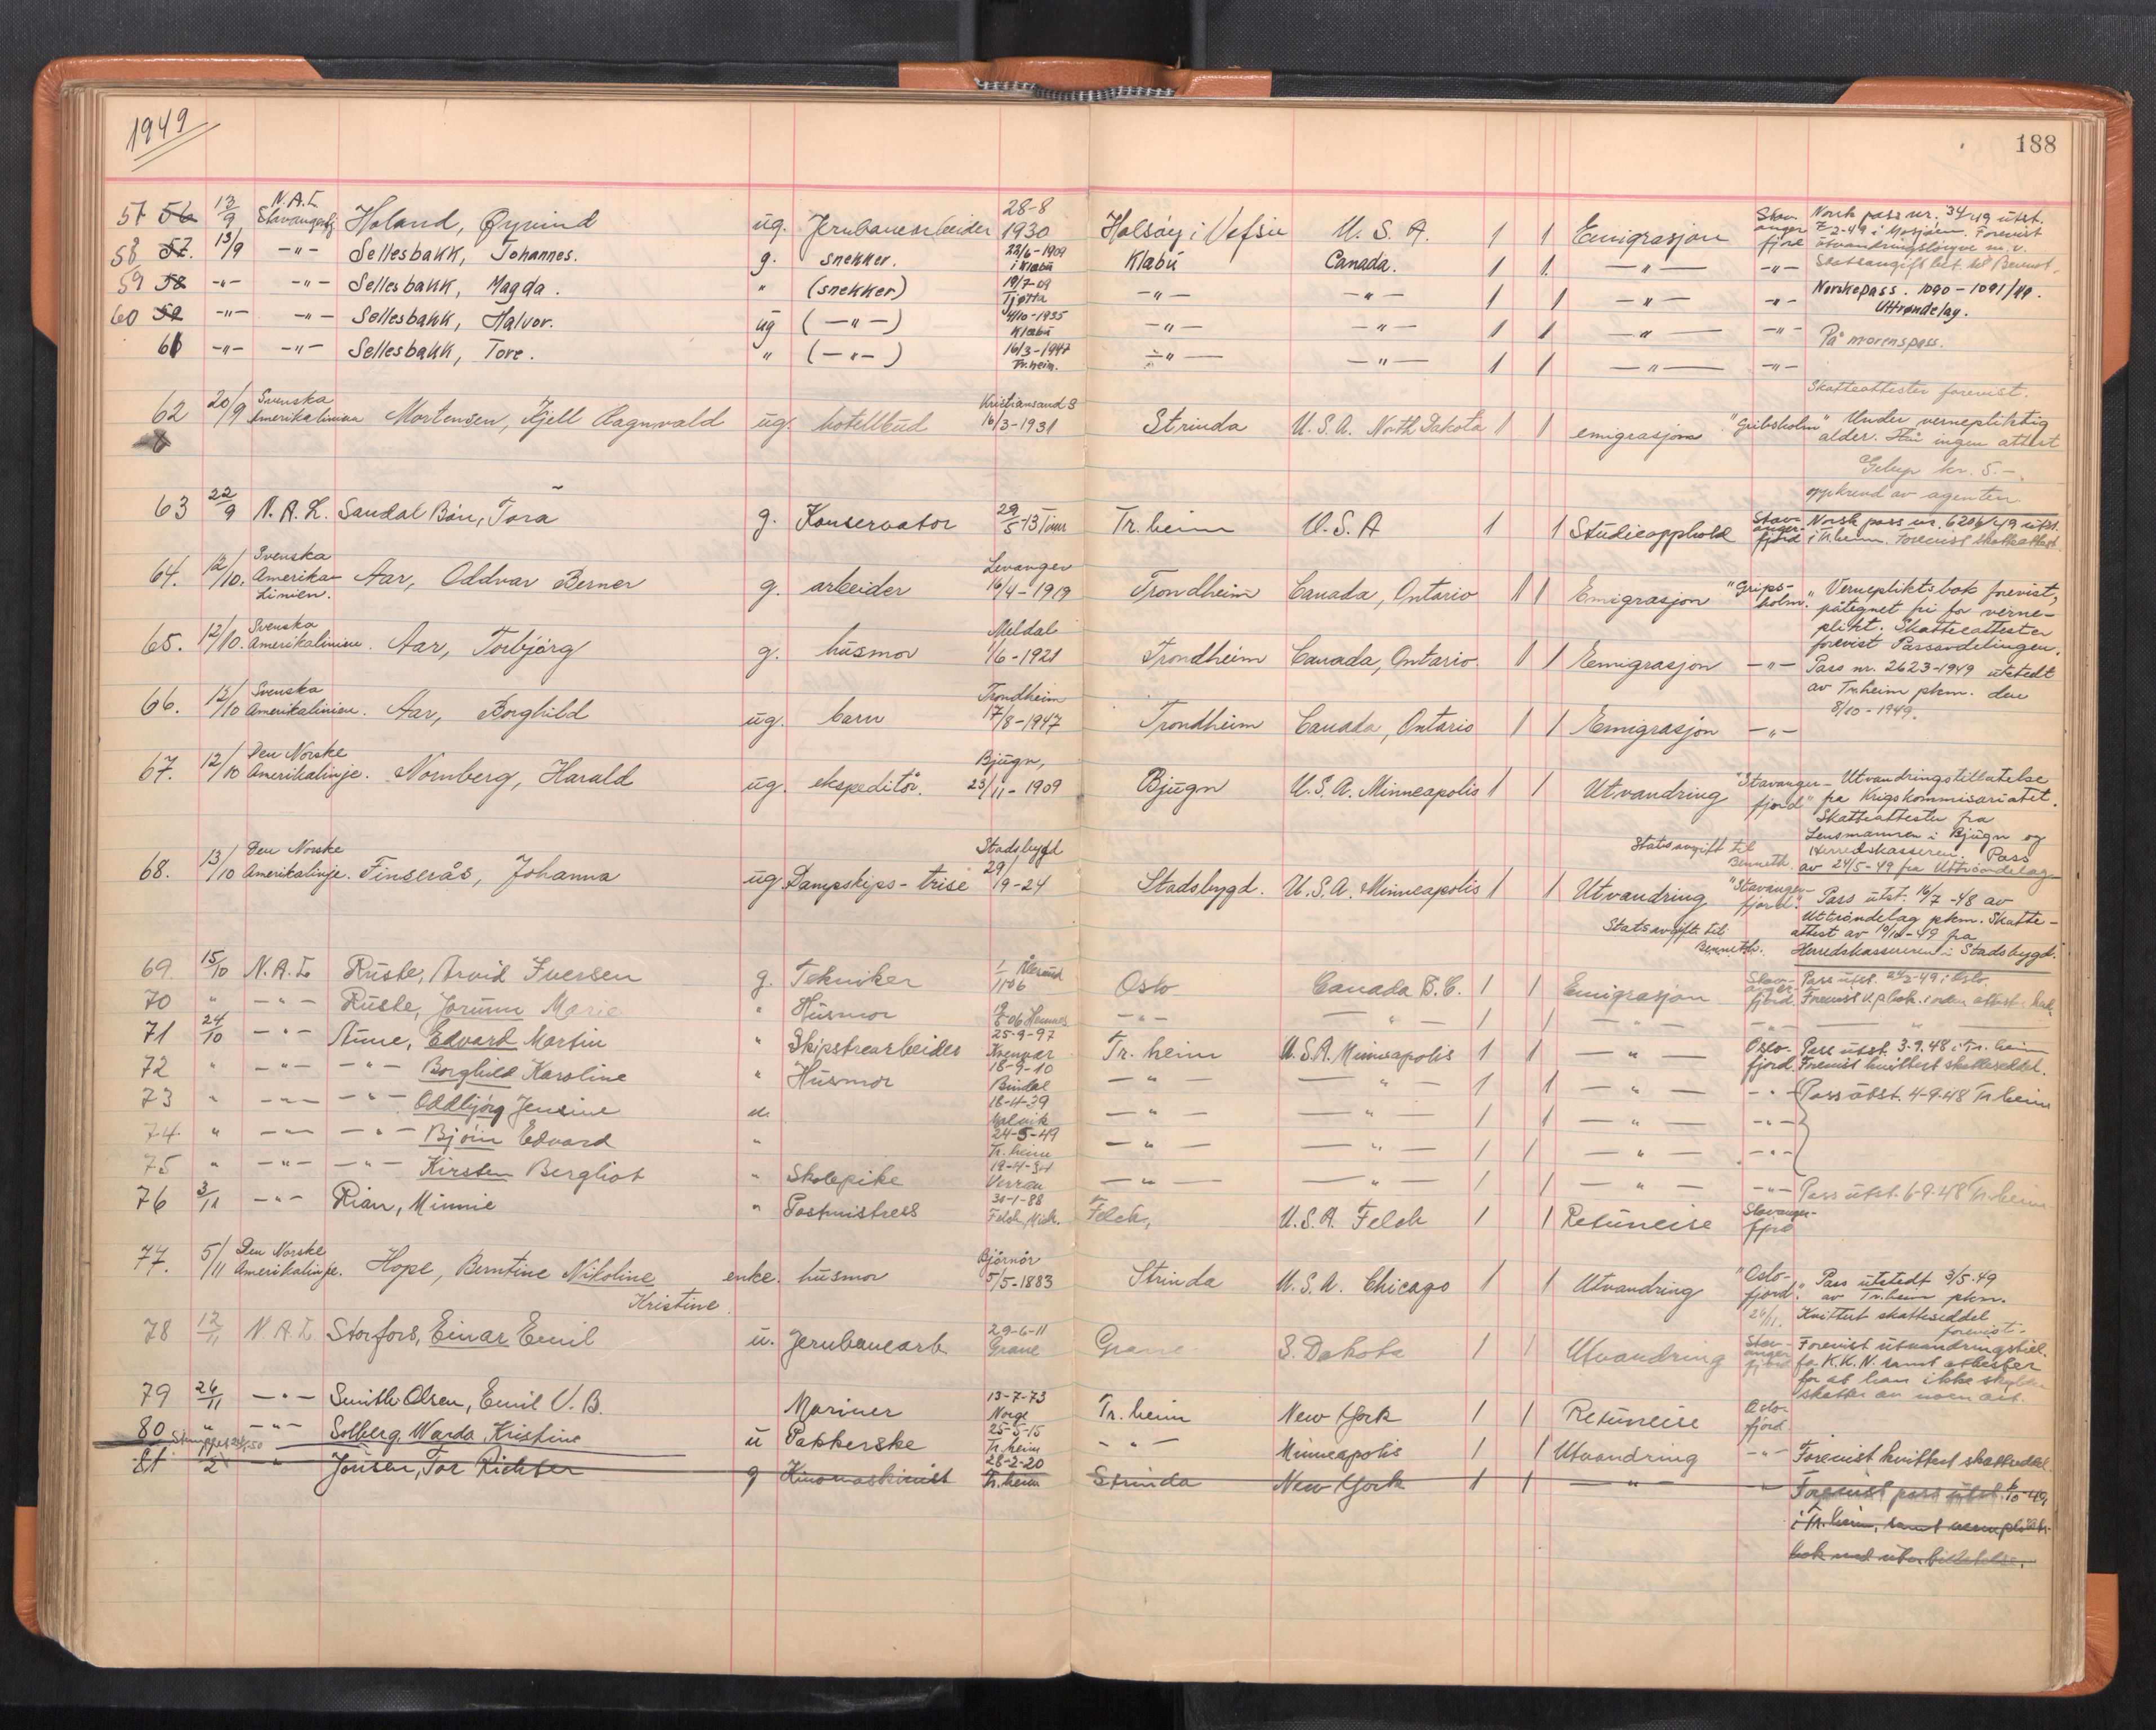 1949
188
57 56 13/9 N.A.L Stavangerfj Holand, Øyvind ug. Jernbanearbeider 28-8 1930 Halsøy i Vefsn U.S.A. 1 1 Emigrasjon Stavangerfjord Norsk pass nr. 34/49 utst. 7/2-49 i Mosjøen. Forevist utvandringsløyve m.v.
58 57. 13/9 -"- Sellesbakk, Johannes. g. snekker. 22/6-1909 i Klæbu Klæbu Canada. 1 1 -"- -"- Statsavgift bet. til Bennet.
59 58 -"- -"- Sellesbakk, Magda. " (snekker) 19/7-09 Tjøtta -"- -"- 1 1 -"- -"- Norskepass. 1090-1091/49. Uttrøndelag.
60 59 -"- -"- Sellesbakk, Halvor. ug (-"-) 4/10-1935 Klæbu -"- -"- 1 1 -"- -"- På morens pass.
61 -"- -"- Sellesbakk, Tore. " (-"-) 16/3-1947 Tr.heim. -"- -"- 1 1 -"- -"-
Skatteattester forevist.
62 20/9 Svenska Amerikalinien Mortensen, Kjell Ragnvald ug. hotellbud Kristiansand S 16/3-1931 Strinda U.S.A. North Dakota 1 1 emigrasjon "Gribsholm" Under vernepliktig alder. Har ingen attest
Gebyr kr. 5.-
oppkrevd av agenten
63 22/9 N.A.L. Sandal Bøn, Tora g. Konservator 29/5-13 Tr.heim U.S.A 1 1 Studieopphold Stavangerfjord Norsk pass nr. 6206/49 utst. i Tr.heim. Forevist skatteattest.
64. 12/10. Svenska Amerika Linien. Aar, Oddvar Berner g. arbeider Levanger 16/4-1919 Trondheim Canada, Ontario 1 1 Emigrasjon "Gripsholm." Vernepliktsbok forevist, påtegnet fri for verneplikt. Skatteattester forevist Passavdelingen.
65. 12/10. Svenska Amerikalinien. Aar, Torbjörg g. husmor Meldal 1/6-1921 Trondheim Canada, Ontario 1 1 Emigrasjon -"- Pass nr. 2623-1949 utstedt av Tr.heim pkm. den 8/10-1949.
66. 12/10 Svenska Amerikalinien. Aar, Borghild ug. barn Trondheim 17/8-1947 Trondheim Canada, Ontario 1 1 Emigrasjon -"-
67. 12/10 Den Norske Amerikalinje. Normberg, Harald ug. ekspeditør. Bjugn, 23/11-1909 Bjugn U.S.A. Minneapolis 1 1 Utvandring "Stavangerfjord" Utvandringstillatelse fra Krigskommisariatet. Skatteattester fra Lensmannen i Bjugn og Herredskasseren. Pass av 24/5-49 fra Uttrøndelag
Statsavgift til Benneth.
68. 13/10 Den Norske Amerikalinje. Finserås, Johanna ug. Dampskips-trise Stadsbygd 29/9-24 Stadsbygd. U.S.A. Minneapolis 1 1 Utvandring "Stavangerfjord". Pass utst. 16/7-48 av Uttrøndelag pkm. Skatteattest av 10/10-49 fra Herredskasseren i Stadsbygd.
Statsavgift til Benneth.
69. 15/10 N.A.L Ruste, Arvid Iversen g. Tekniker 1/11 06 Ålesund Oslo Canada B.C. 1 1 Emigrasjon Stavangerfjord Pass utst. 24/2-49 i Oslo. Forevist v.pl.bok i orden
70 " -"- Ruste, Jorunn Marie " Husmor -"- -"- 1 1 -"- -"-
71 24/10 -"- Aune, Edvard Martin " Skipstrearbeider 25-9-97 Kvenvær Tr.heim U.S.A. Minneapolis 1 1 -"- Oslofjord. Pass utst. 3.9.48 i Tr.heim Forevist kvittert skatteseddel.
72 " -"- -"- Borghild Karoline " Husmor 18-9-10 Bindal -"- -"- 1 1 -"- -"- Pass utst. 4-9-48 Tr.heim
73 " -"- -"- Oddbjørg Jensine u. 18-4-39 Malvik -"- -"- 1 1 -"- -"-
74 " -"- -"- Bjørn Edvard " 24-5-49 Tr.heim -"- -"- 1 1 -"- -"-
75 " -"- -"- Kirsten Bergliot " Skolepike 19-4-34 Verran -"- -"- 1 1 -"- -"- Pass utst. 6-9-48 Tr.heim
76 3/11 -"- Rian, Minnie " Postmistress 30-1-88 Felch Mich. Felch, U.S.A. Felch 1 1 Retureise Stavangerfjord
77. 5/11 Den Norske Amerikalinje. Hope, Berntine Nikoline Kristine. enke. husmor Bjørnør 5/5-1883 Strinda U.S.A. Chicago 1 1 Utvandring "Oslofjord." Pass utstedt 3/5-49 av Tr.heim pkm.
26/11. Kvittert skatteseddel forevist.
78 12/11 N.A.L Storfors, Einar Emil u. Jernbanearb 29-6-11 Grane Grane S. Dakota 1 1 Utvandring Stavangerfjord Forevist utvandringstill. fra K.K.N. samt attester for at han ikke skylder skatter av noen art.
79 26/11 -"- Smith-Olsen, Emil V.B. Mariner 13-7-73 Norge Tr.heim New York 1 1 Retureise Oslofjord.
80 " -"- Solberg, Warda Kristine u Pakkerske 25-5-15 Tr.heim -"- Minneapolis 1 1 Utvandring -"- Forevist kvittert skatteseddel.
81 2 " Jönsen, Tor Richter g Kinomaskinist 28-2-20 Tr.heim Strinda New York 1 1 -"- " Forevist pass utst. 6/10-49 i Tr.heim, samt vernepliktsbok med utv.tillatelse.